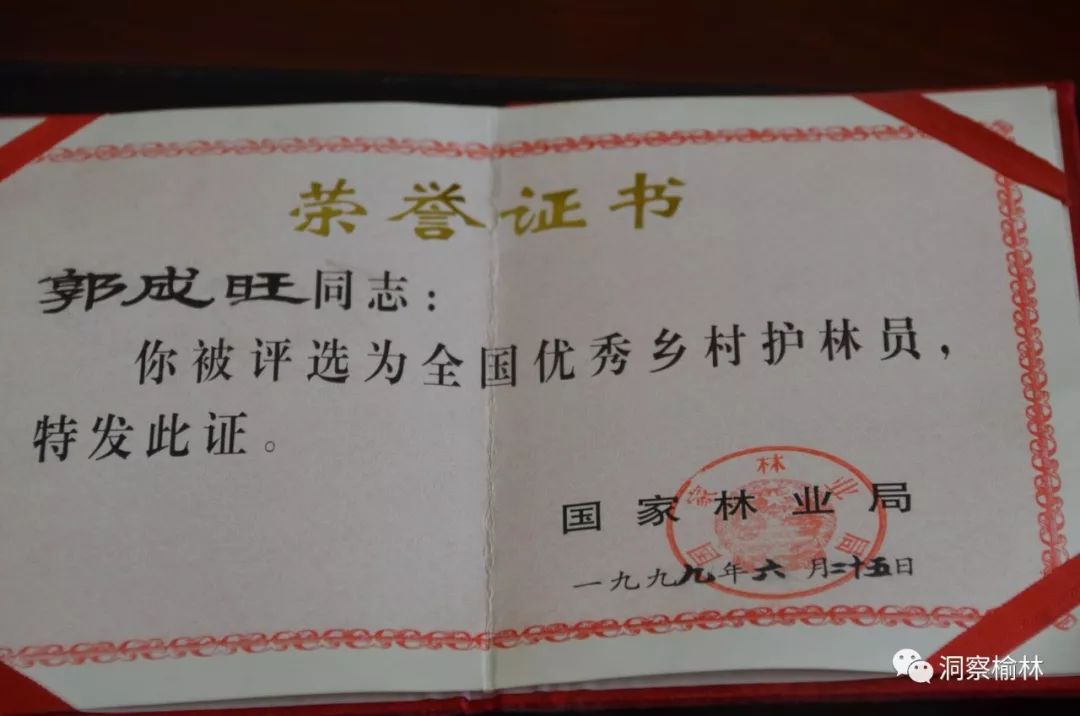 荣誉证书
郭成旺同志：
你被评选为全国优秀乡村护林员，
特发此证。
国家林业局
国家林业局
一九九九年六月二十五日
洞察榆林